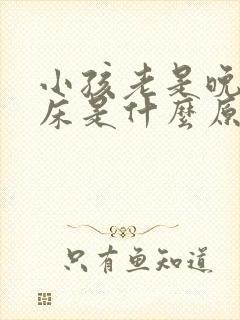 小孩老是晚
床是什麼原
只有鱼知道